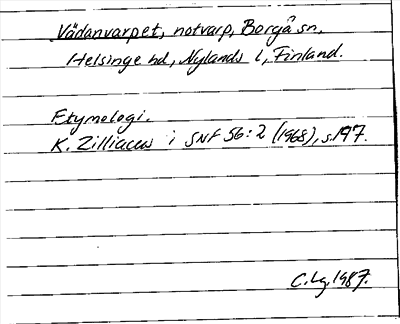 Vådanvarpet, notvarp, Borgå sn,
Helsinge hd, Nylands l, Finland.
Etymologi.
K. Zilliacus i SNF 56:2 (1968), s.197.
C.Lg. 1987.